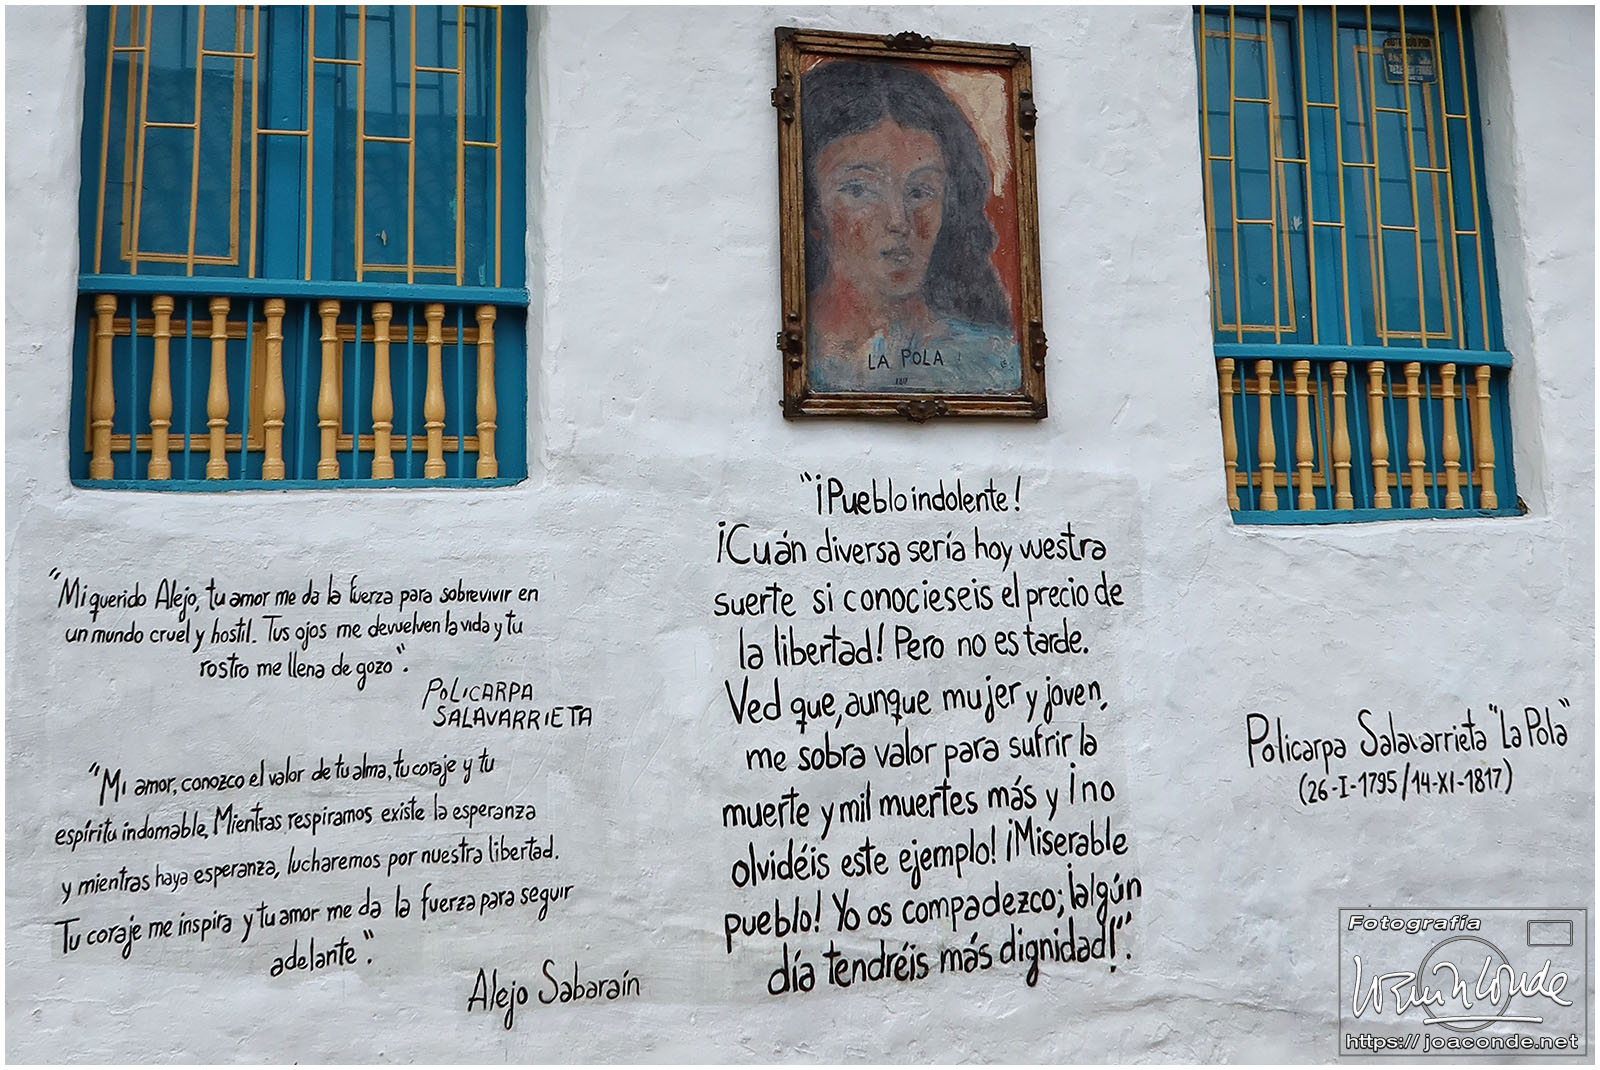 LA POLA
"¡Pueblo indolente!
¡Cuán diversa sería hoy vuestra
suerte si conocieseis el precio de
la libertad! Pero no es tarde.
Ved que, aunque mujer y joven,
me sobra valor para sufrir la
muerte y mil muertes más y ¡no
olvidéis este ejemplo! ¡Miserable
pueblo! Yo os compadezco; ¡algún
día tendréis más dignidad!".
"Mi querido Alejo, tu amor me da la fuerza para sobrevivir en
un mundo cruel y hostil. Tus ojos me devuelven la vida y tu
rostro me llena de gozo".
POLICARPA
SALAVARRIETA
"Mi amor, conozco el valor de tu alma, tu coraje y tu
espíritu indomable, Mientras respiramos existe la esperanza
y mientras haya esperanza, lucharemos por nuestra libertad.
Tu coraje me inspira y tu amor me da la fuerza para seguir
adelante."
Alejo Sabaraín
Policarpa Salavarrieta "La Pola"
(26-I-1795/14-XI-1817)
Fotografía
https://joaconde.net